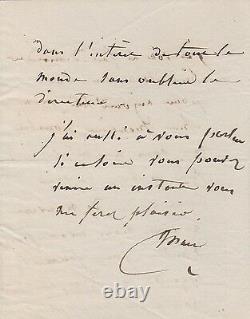 dans l'intérêt de tout le
monde sans oublier le
directeur
j'ai aussi à vous parler
si vous pouvez
venir un instant vous
me ferez plaisir